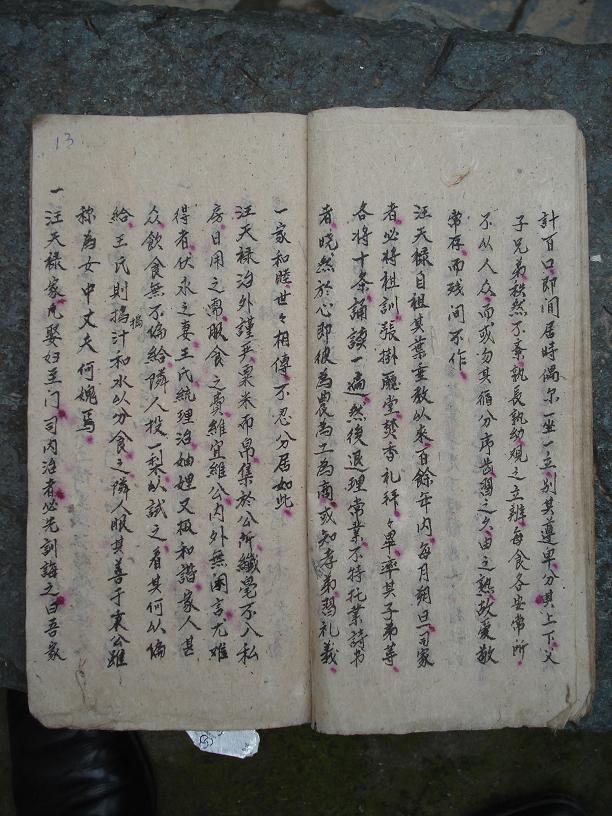 計百口即间居時偶尔一坐一立别其尊卑分其上下父
子兄弟秩然不紊孰長孰幼观之立辨每食各安常所
不以人众而或勿其循分序齿習之久由之熟故爱敬
常存而残间不作
汪天禄自祖其葉重敖以来百餘年内每月朔日司家
者必将祖訓張掛廳堂焚香礼拜々畢率其子弟等
各将十条誦讀一遍然後退理常業不特托業詩书
者晓然於心即彼為農為工為商或知孝弟習礼義
一家和睦世々相傳不忍分居如此
汪天禄治外謹严粟米布帛集於公所纖毫不入私
房日用之需服食之費維宜維公内外無闲言尤难
得者伏永之妻王氏統理治妯娌又极和諧家人甚
众飲食無不偏給隣人投一梨以試之看其何以偏
給王氏則搗汁和水以分食之隣人服其善于東公雖
搗
称為女中丈夫何媿焉
一汪天禄家凡娶妇至门司内治者必先訓誨之曰吾家
13